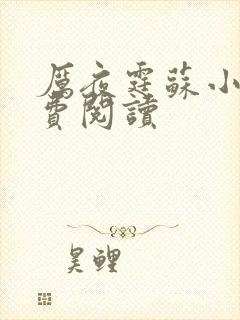 厲夜霆蘇小
費閱讀
昊鯉